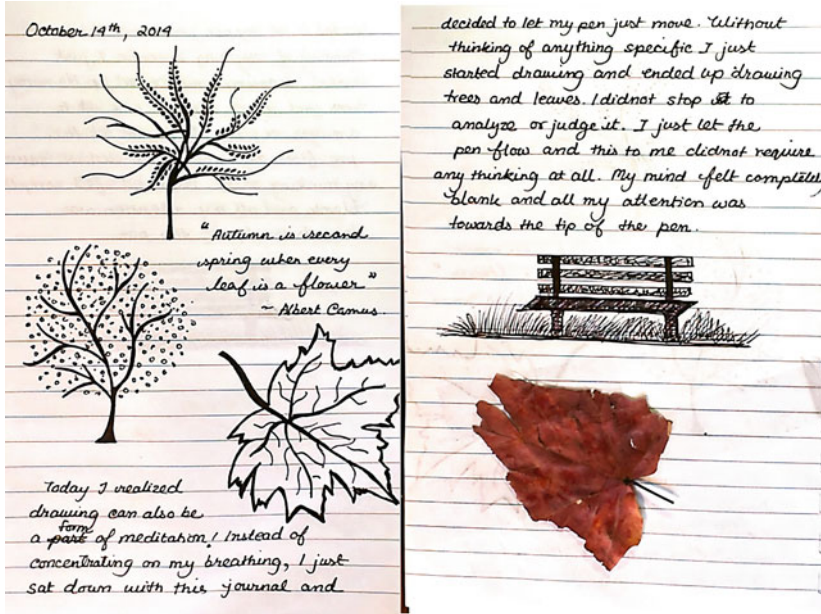 October 14th, 2019
"Autumn is second
spring when every
leaf is a flower"
~ Albert Camus.
Today I realized
drawing can also be
a form of meditation! Instead of
concentrating on my breathing, I just
sat down with this journal and
decided to let my pen just move. Without
thinking of anything specific I just
started drawing and ended up drawing
trees and leaves. I didnot stop to
analyze or judge it. I just let the
pen flow and this to me didnot require
any thinking at all. My mind felt completely
blank and all my attention was
towards the tip of the pen.